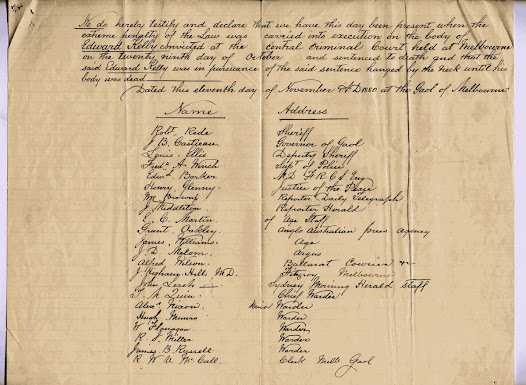 We do hereby testify and declare that we have this day been present when the
extreme penalty of the Law was carried into execution on the body of
Edward Kelly convicted at the central Criminal Court held at Melbourne
on the twenty ninth day of October and sentenced to death and that the
said Edward Kelly was in pursuance of the said sentence hanged by the neck until his
body was dead
Dated this eleventh day of November AD 1880 at the Gaol of Melbourne
Name Address
Robt Rede Sheriff
J B. Castieau Governor of Gaol
Louis Ellis Deputy Sheriff
Fredk A. Winch Supt of Police
Edwd Barker MD FRCS Eng
Henry Glenny Justice of the Peace
Wm Brown Reporter Daily Telegraph
J Middleton Reporter Herald
E. C. Martin of Age Staff
Grant Oakley Anglo Australian press agency
James Williams Age
J. D. Melvin Argus
Alfred Wilson Ballarat Courier
J. Highway Hall M.D. Fitzroy Melbourne
John Lesch Sydney Morning Herald Staff
Chief Warder
Alexr Nixon Senior Warder
Hugh Munro Warder
W Flanagan Warder
R. S. Miller Warder
James B. Warder
R. W. McCall Clerk Melb Gaol